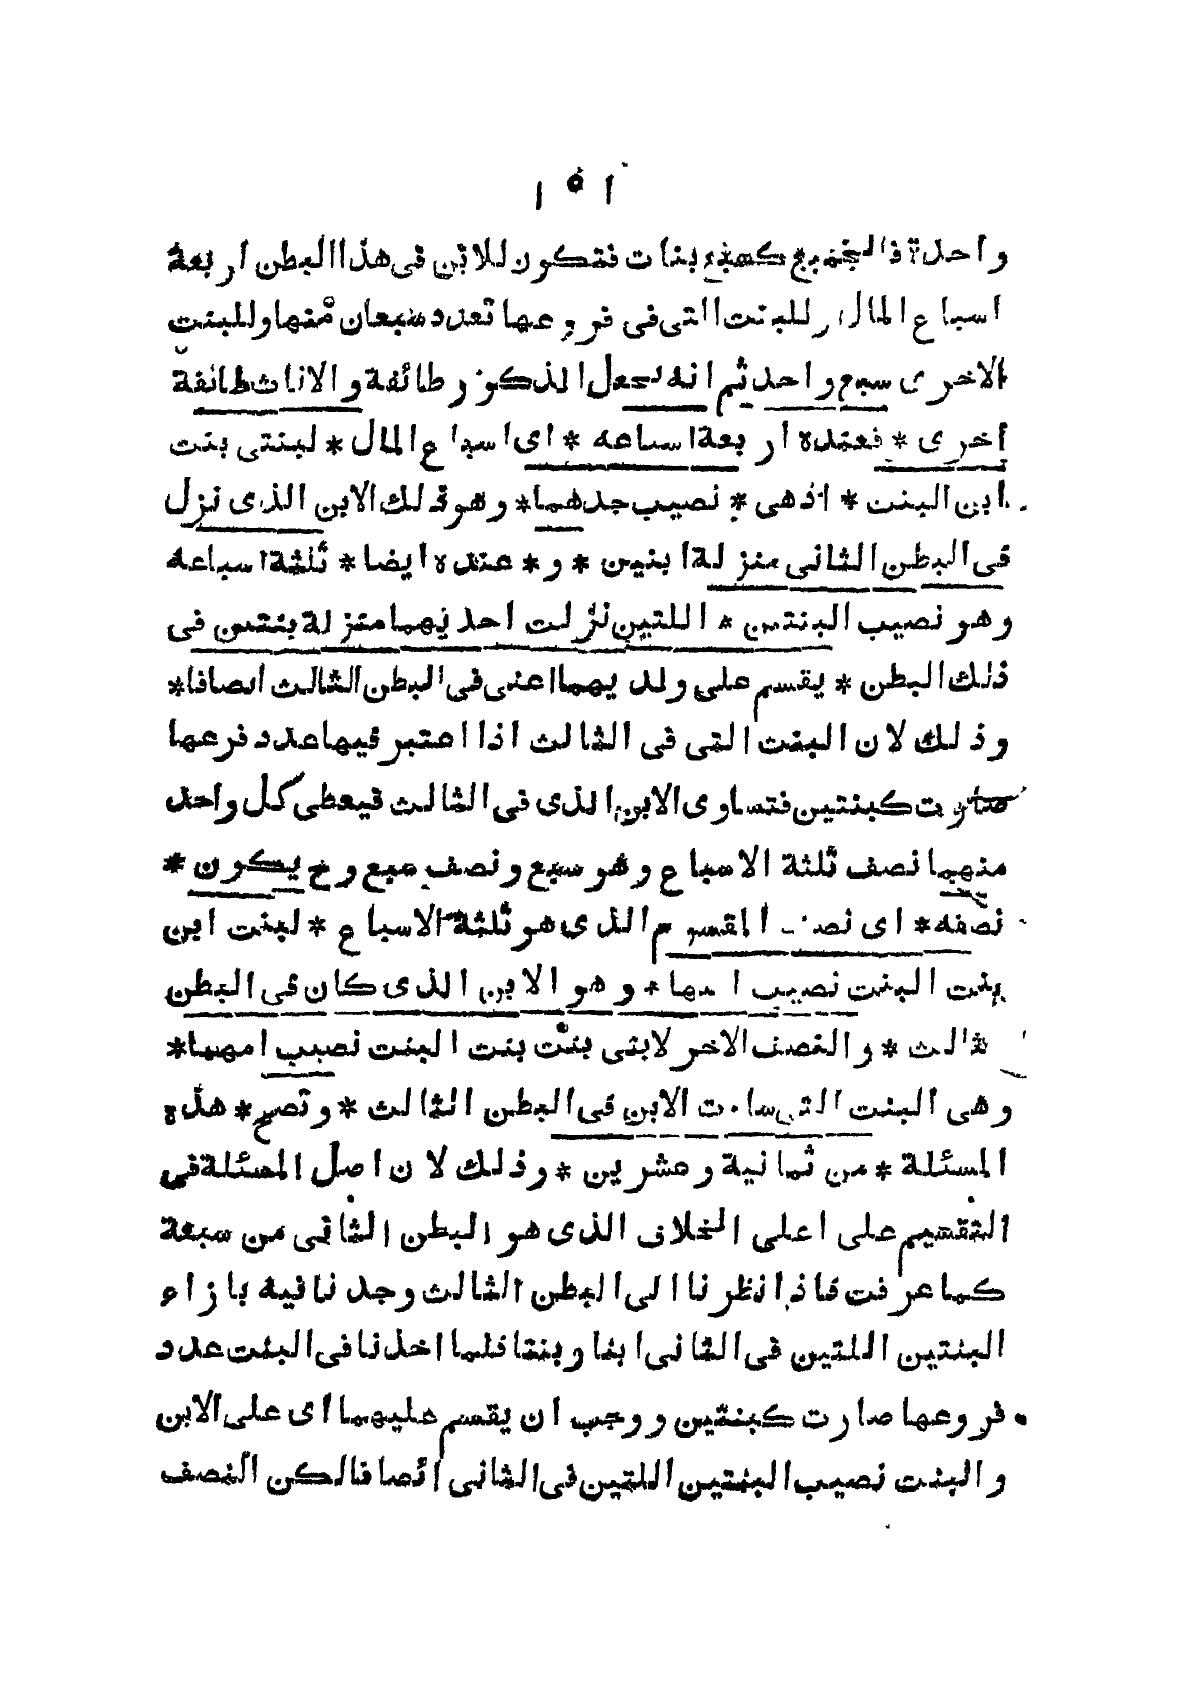 ١٥١
واحدة فالجميع كسبع بنات فتكون للابن فى هذا البطن اربعة
اسباع المال وللبنت التى فى فروعها تعدد سبعان منها وللبنت
الاخرى سبع واحد ثم انه يجعل الذكور طائفة والاناث طائفة
اخرى * فعنده اربعة اسباعه * اى اسباع المال * لبنتى بنت
ابن البنت * اذ هى * نصيب جدهما * وهو ذلك الابن الذى نزل
فى البطن الثانى منزلة ابنين * و * عنده ايضا * ثلثة اسباعه
وهو نصيب البنتين * اللتين نزلت احديهما منزلة بنتين فى
ذلك البطن * يقسم على ولديهما اعنى فى البطن الثالث انصافا *
وذلك لان البنت التى فى الثالث اذا اعتبر فيها عدد فرعها
صارت كبنتين فتساوى الابن الذى فى الثالث فيعطى كل واحد
منهما نصف ثلثة الاسباع وهو سبع ونصف سبع وح يكون *
نصفه * اى نصف المقسوم الذى هو ثلثة الاسباع * لبنت ابن
بنت البنت نصيب ابيها * وهو الابن الذى كان فى البطن
الثالث * والنصف الاخر لابنى بنت بنت البنت نصيب امهما *
وهى البنت التى ساوت الابن فى البطن الثالث * وتصح * هذه
المسئلة * من ثمانية وعشرين * وذلك لان اصل المسئلة فى
التقسيم على اعلى الخلاف الذى هو البطن الثانى من سبعة
كما عرفت فاذا نظرنا الى البطن الثالث وجدنا فيه بازاء
البنتين اللتين فى الثانى ابنا وبنتا فلما اخذنا فى البنت عدد
فروعها صارت كبنتين ووجب ان يقسم عليهما اى على الابن
والبنت نصيب البنتين اللتين فى الثانى انصافا لكن النصف